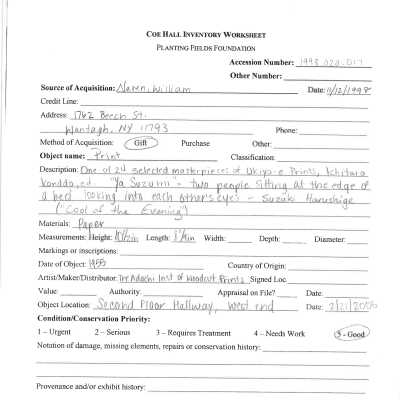 COE HALL INVENTORY WORKSHEET
PLANTING FIELDS FOUNDATION
Accession Number: 1998.020.017
Other Number:
Source of Acquisition: Naren, William Date: 11/12/1998
Credit Line:
Address: 1762 Beech St.
Wantagh, NY 11793 Phone:
Method of Acquisition: Gift Purchase Other:
Object name: Print Classification:
Description: One of 24 selected masterpieces of Ukiyo-e Prints, Ichitaro
Kondo, ed "Ya Suzumi" - two people sitting at the edge of
a bed looking into each other's eyes - Suzuki Harushige
("Cool of the Evening")
Materials: Paper
Measurements: Height: Length: Width: Depth: Diameter:
Markings or inscriptions:
Date of Object: 1955 Country of Origin:
Artist/Maker/Distributor: The Adachi Inst of Woodcut Prints Signed Loc
Value: Authority: Appraisal on File? Date:
Object Location: Second Floor Hallway, West end Date: 2/21/2006
Condition/Conservation Priority:
1 – Urgent 2 – Serious 3 – Requires Treatment 4 – Needs Work 5 - Good
Notation of damage, missing elements, repairs or conservation history:
Provenance and/or exhibit history: